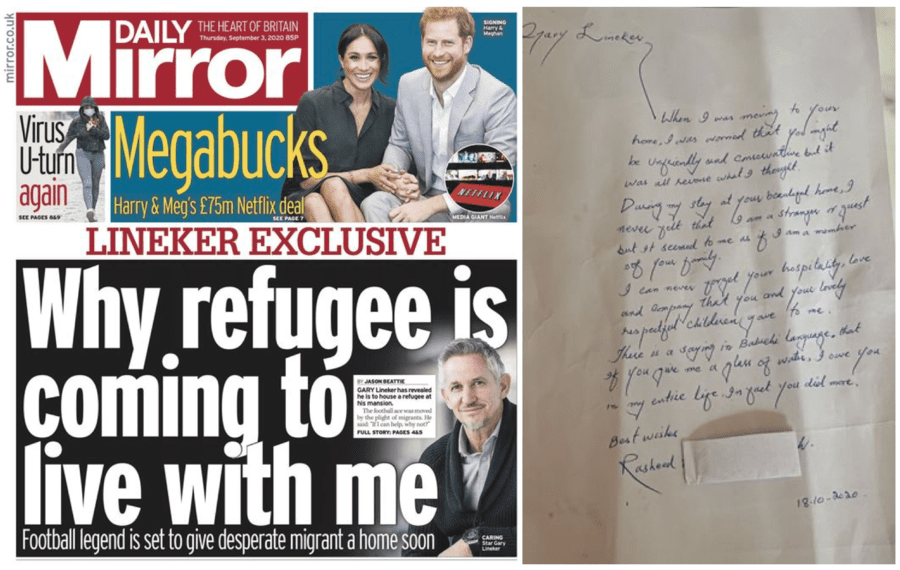 mirror.co.uk
DAILY
Mirror
THE HEART OF BRITAIN
Thursday, September 3, 2020 85P
SIGNING
Harry &
Meghan
Virus
U-turn
again
SEE PAGES 8&9
Megabucks
Harry & Meg's £75m Netflix deal
SEE PAGE 7
NETFLIX
MEDIA GIANT Netflix
LINEKER EXCLUSIVE
Why refugee is
coming to
live with me
BY JASON BEATTIE
GARY Lineker has revealed
he is to house a refugee at
his mansion.
The football ace was moved
by the plight of migrants. He
said: "If I can help, why not?"
FULL STORY: PAGES 4&5
Football legend is set to give desperate migrant a home soon
CARING
Star Gary
Lineker
Gary Lineker
When I was moving to your
home, I was worried that you might
be unfriendly and conservative but it
was all reverse what I thought.
During my stay at your beautiful home, I
never felt that I am a stranger or guest
but it seemed to me as if I am a member
of your family.
I can never forget your hospitality, love
and company that you and your lovely
respectful childeren gave to me.
There is a saying in Baluchi language, that
if you give me a glass of water, I owe you
my entire life. In fact you did more.
Best wishes
Rasheed
18.10-2020